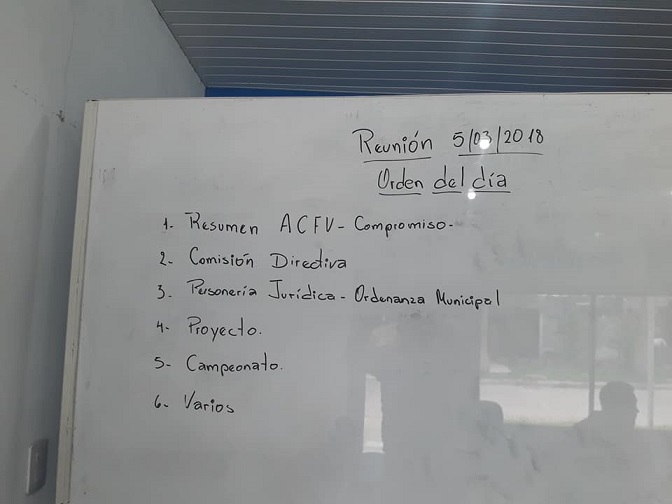 Reunión 5/03/2018
Orden del día
1- Resumen ACFV - Compromiso-
2- Comisión Directiva
3- Personería Jurídica - Ordenanza Municipal
4- Proyecto.
5- Campeonato.
6- Varios